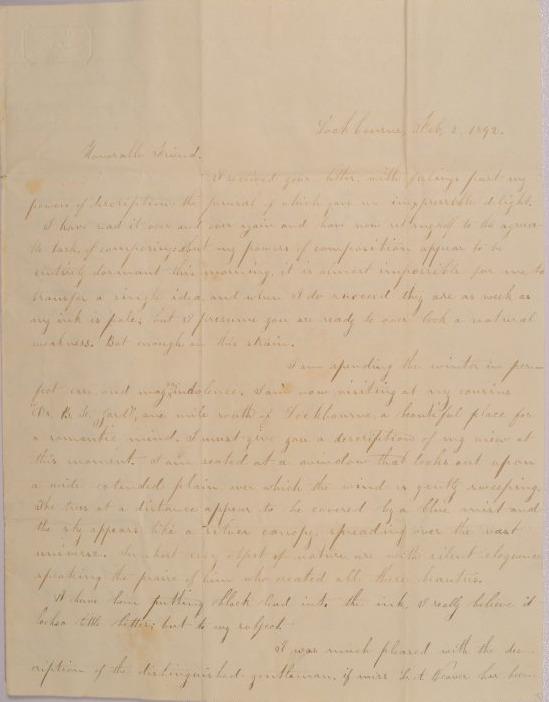 Lockbourne, Feb, 2, 1892.
Honorable Friend.
I received your letter, with feelings past my
powers of description, the perusal of which gave me inexpressible delight.
I have read it over and over again and have now set myself to the
task of composing; but my powers of composition appear to be
entirely dormant this morning, it is almost impossible for me to
transfer a single idea and when I do succeed they are as weak as
my ink is pale; but I presume you are ready to over look a natural
weakness. But enough in this strain.
I am spending the winter in per-
fect ease and indolence. I am now visiting at my cousins
one mile south of Lockbourne, a beautiful place for
a romantic mind. I must give you a description of my view at
this moment. I am seated at a window that looks out upon
a wide extended plain over which the wind is gently sweeping.
The trees at a distance appear to be covered by a blue mist and
the sky appears like a silver canopy, spreading over the vast
universe. In short every object of nature are with silent eloquence
speaking the praise of him who created all these beauties.
I have been putting black lead into the ink, I really believe it
looks a little better; but to my subject
I was much pleased with the des-
cription of the distinguished gentleman, if miss Beaver has been